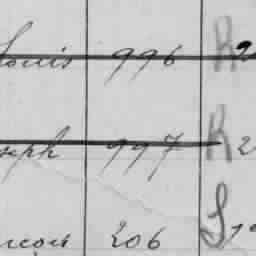 Louis 996 R 2
seph 997 R 2
ncois 206 S 1